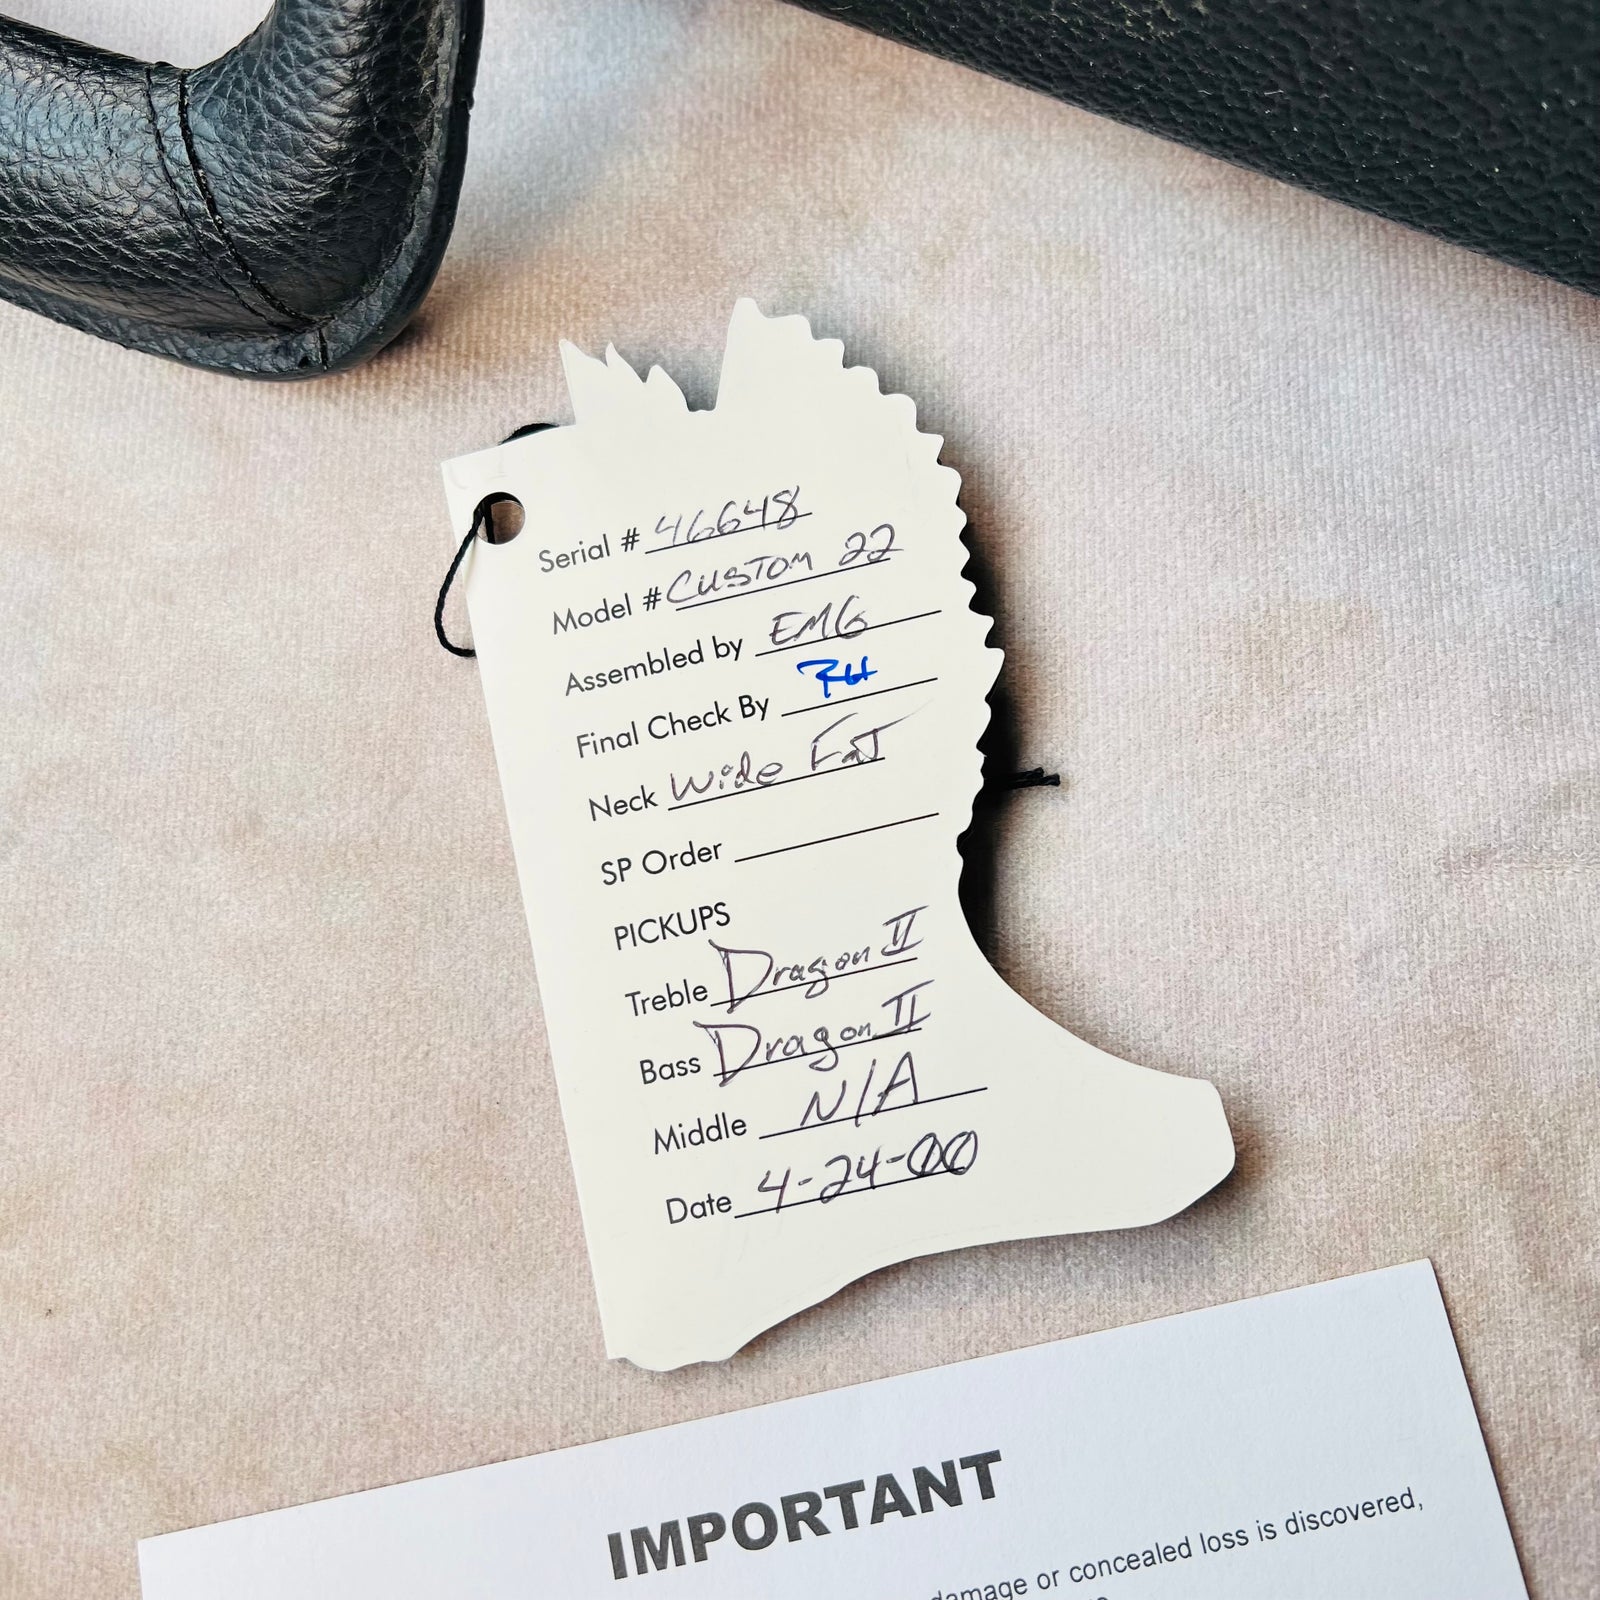 Serial # 46648
Model # Custom 22
Assembled by EMG
Final Check By RH
Neck Wide Fat
SP Order
PICKUPS
Treble Dragon II
Bass Dragon II
Middle N/A
Date 4-24-00
IMPORTANT
damage or concealed loss is discovered,